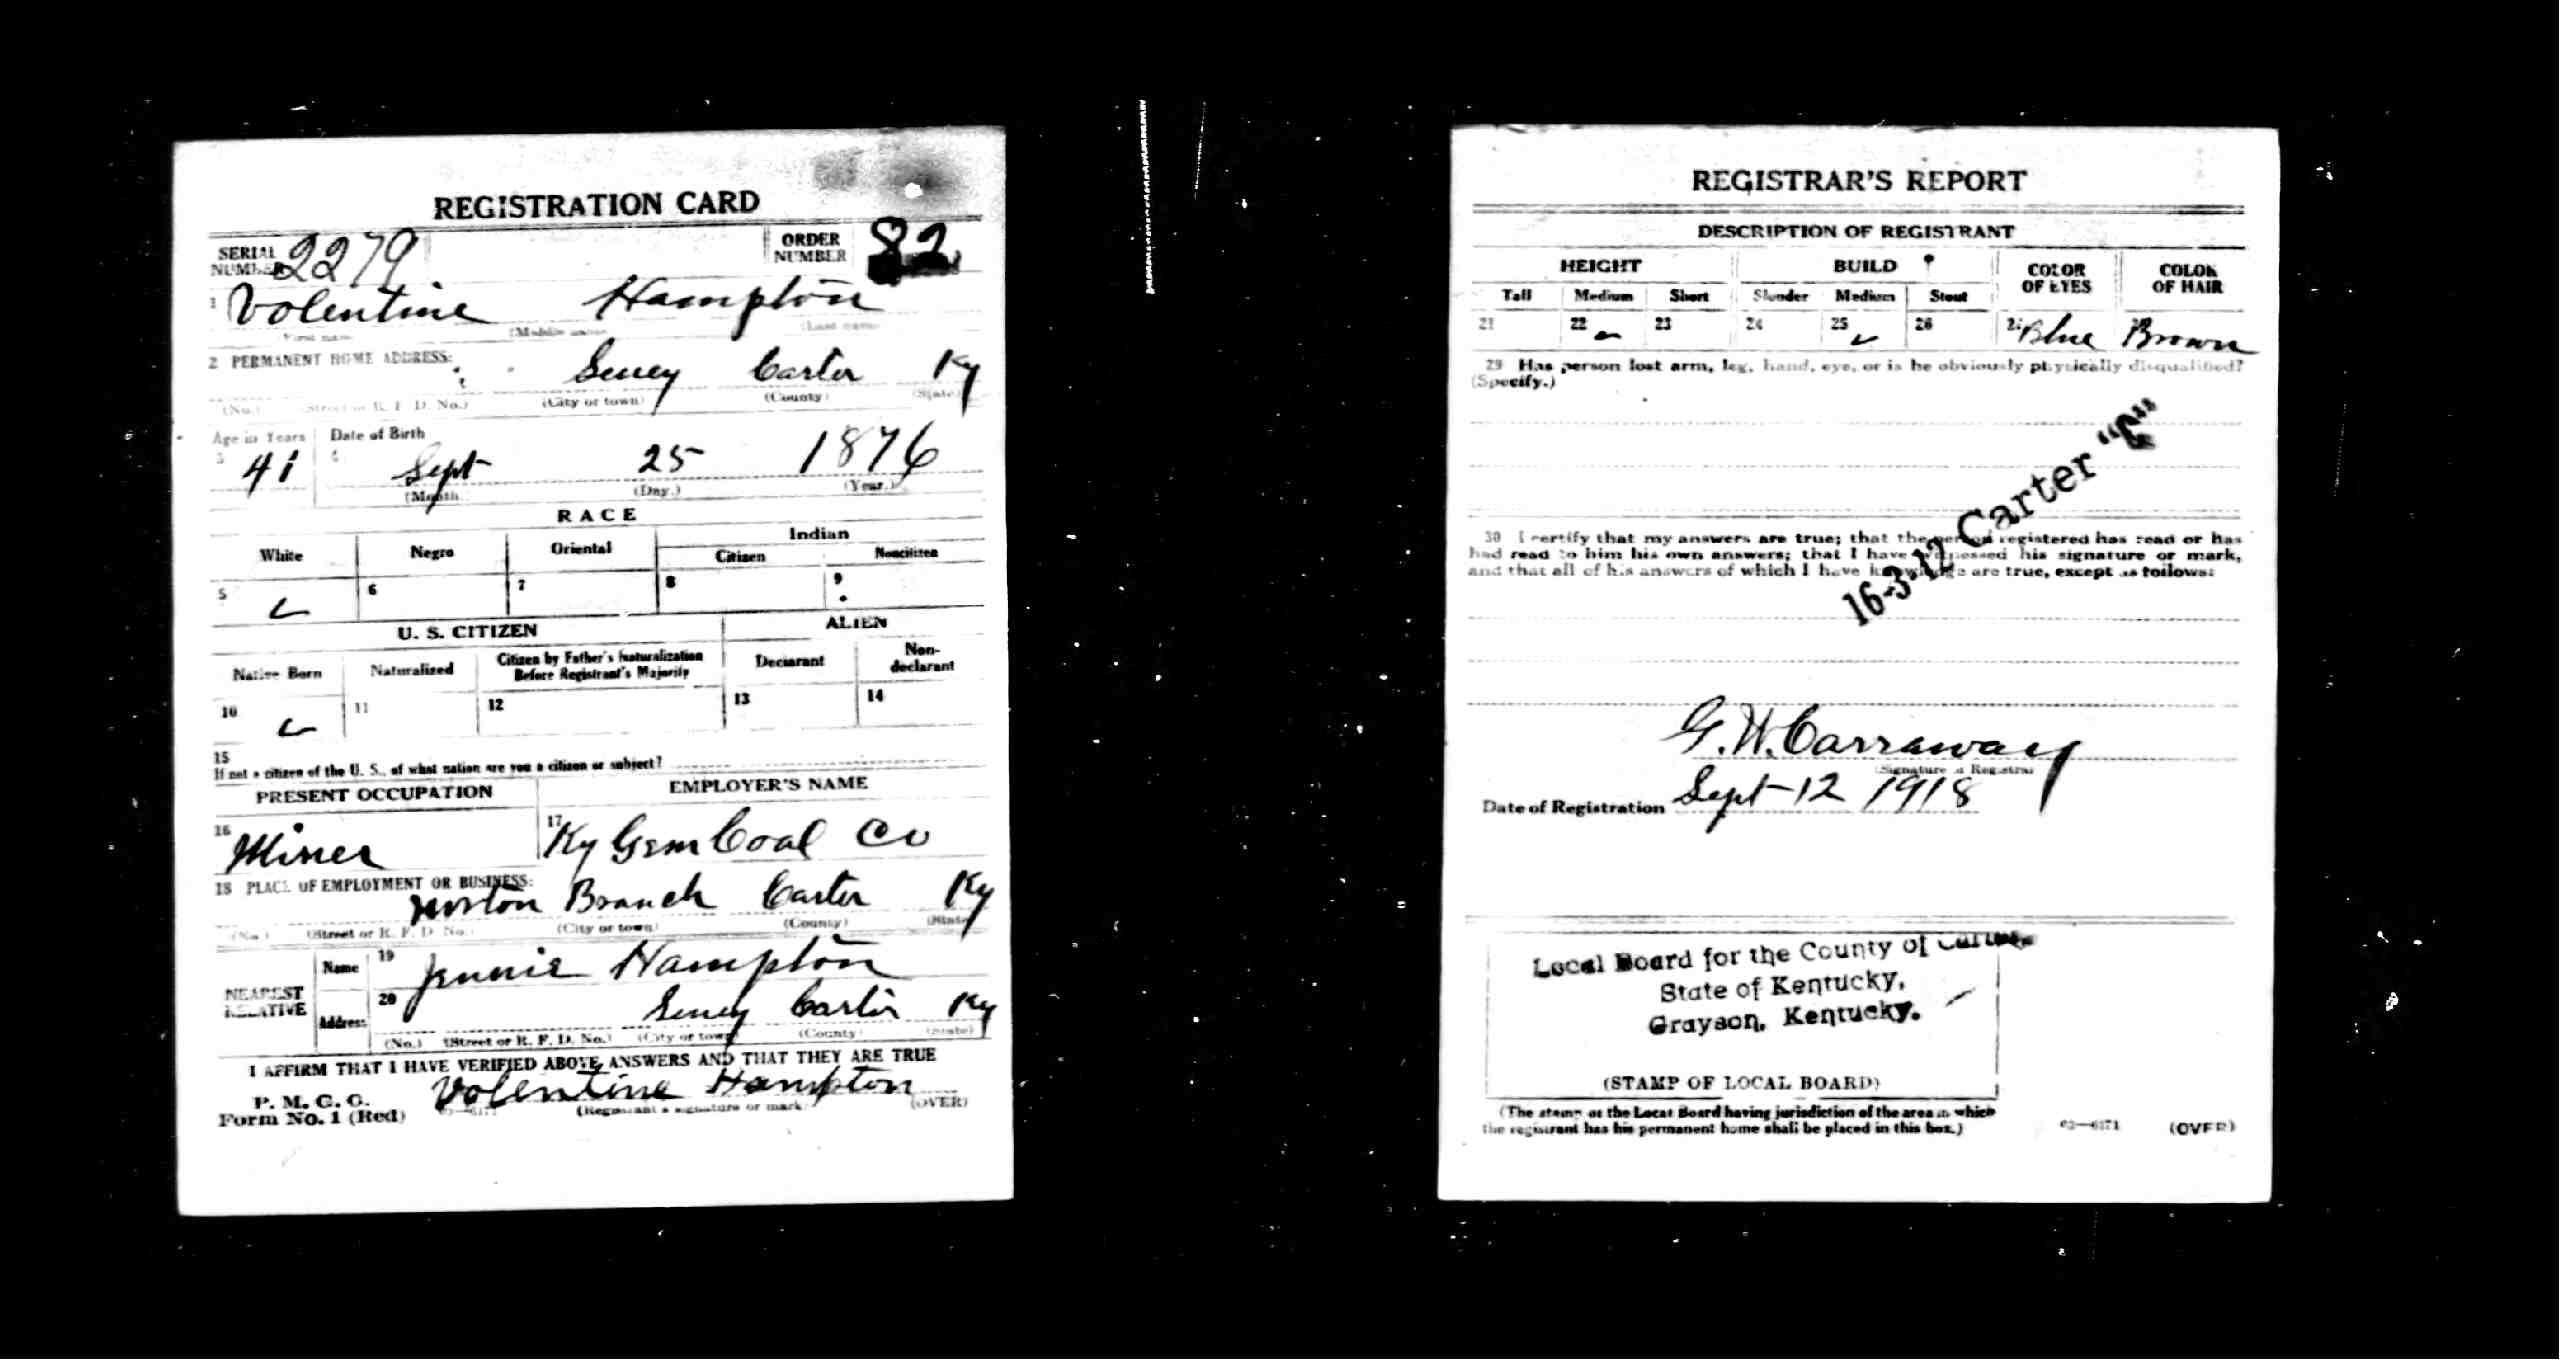 REGISTRATION CARD
SERIAL NUMBER 2279
ORDER NUMBER 82
1 Volentine Hampton
(First name) (Middle name) (Last name)
2 PERMANENT HOME ADDRESS:
Seney Carter Ky
(No.) (Street or R. F. D. No.) (City or town) (County) (State)
Age in Years Date of Birth
3 41 4 Sept 25 1876
(Month.) (Day.) (Year.)
RACE
White Negro Oriental Indian
Citizen Noncitizen
5 6 7 8 9
U. S. CITIZEN ALIEN
Native Born Naturalized Citizen by Father's Naturalization Before Registrant's Majority Declarant Non-declarant
10 11 12 13 14
15
If not a citizen of the U. S., of what nation are you a citizen or subject?
PRESENT OCCUPATION EMPLOYER'S NAME
16 Miner 17 Ky Gem Coal Co
18 PLACE OF EMPLOYMENT OR BUSINESS:
Norton Branch Carter Ky
(No.) (Street or R. F. D. No.) (City or town) (County) (State)
NEAREST RELATIVE
Name 19 Jennie Hampton
Address 20 Seney Carter Ky
(No.) (Street or R. F. D. No.) (City or town) (County) (State)
I AFFIRM THAT I HAVE VERIFIED ABOVE ANSWERS AND THAT THEY ARE TRUE
P. M. G. O.
Form No. 1 (Red) Volentine Hampton
(Registrant's signature or mark) (OVER)
REGISTRAR'S REPORT
DESCRIPTION OF REGISTRANT
HEIGHT BUILD COLOR OF EYES COLOR OF HAIR
Tall Medium Short Slender Medium Stout
21 22 23 24 25 26 27 Blue 28 Brown
29 Has person lost arm, leg, hand, eye, or is he obviously physically disqualified?
(Specify.)
16-3-12 Carter "C"
30 I certify that my answers are true; that the person registered has read or has
had read to him his own answers; that I have witnessed his signature or mark,
and that all of his answers of which I have knowledge are true, except as follows:
G. W. Carraway
(Signature of Registrar)
Date of Registration Sept-12 1918
Local Board for the County of Carter,
State of Kentucky,
Grayson, Kentucky.
(STAMP OF LOCAL BOARD)
(The stamp of the Local Board having jurisdiction of the area in which
the registrant has his permanent home shall be placed in this box.)
03—6171 (OVER)